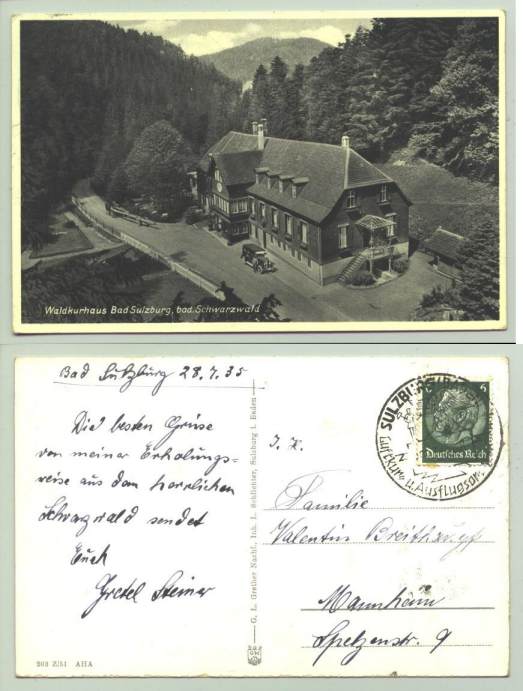 Waldkurhaus Bad Sulzburg, bad. Schwarzwald
Bad Sulzburg 28.7.35
Die besten Grüsse
von meiner Erholungs-
reise aus dem herrlichen
Schwarzwald sendet
Euch
Gretel Steiner
203 2/51 AHA
G. L. Grether Nachf., Inh. L. Schlichter, Sulzburg i. Baden
SULZBURG
Luftkur- u. Ausflugsort
6
Deutsches Reich
Familie
Valentin Breithaupt
Mannheim
Spelzenstr. 9